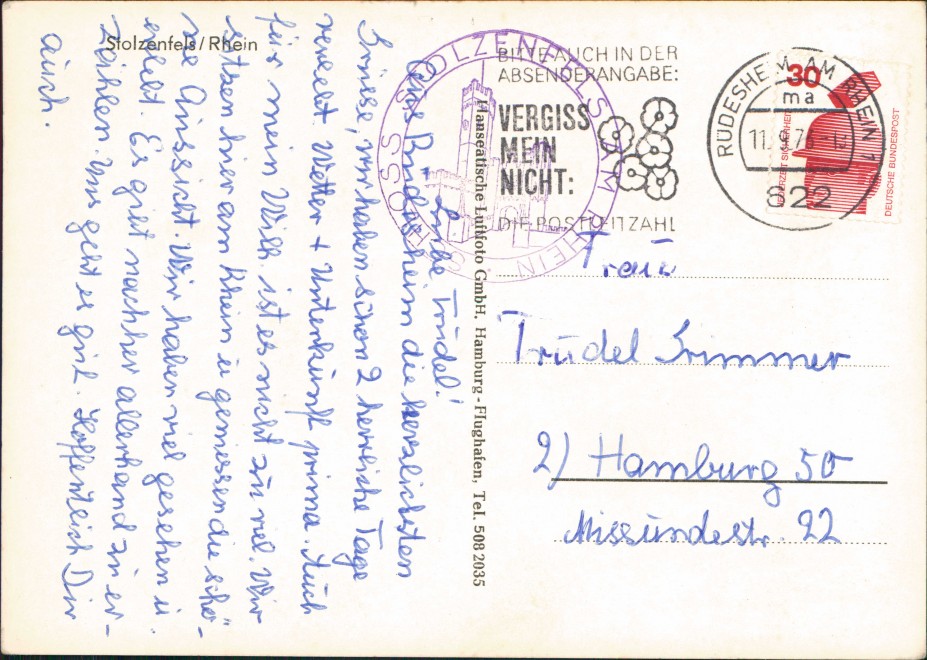 Stolzenfels/Rhein
Liebe Trudel!
Aus Rüdesheim die herzlichsten
Grüsse, wir haben schon 2 herrliche Tage
verlebt. Wetter + Unterkunft prima. Auch
für mein Willi ist es nicht zu viel. Wir
sitzen hier am Rhein u geniessen die schö-
ne Aussicht. Wir haben viel gesehen u
erlebt. Es gibt nachher allerhand zu er-
zählen. Uns geht es gut. Hoffentlich Dir
auch.
SCHLOSS STOLZENFELS AM RHEIN
Hanseatische Luftfoto GmbH. Hamburg-Flughafen, Tel. 508 2035
BITTE AUCH IN DER
ABSENDERANGABE:
VERGISS
MEIN
NICHT:
DIE POSTLEITZAHL
RÜDESHEIM AM RHEIN 1
ma
11.9.
822
30
JEDERZEIT SICHERHEIT
DEUTSCHE BUNDESPOST
Frau
Trudel Grimmer
2) Hamburg 50
Missundestr. 22